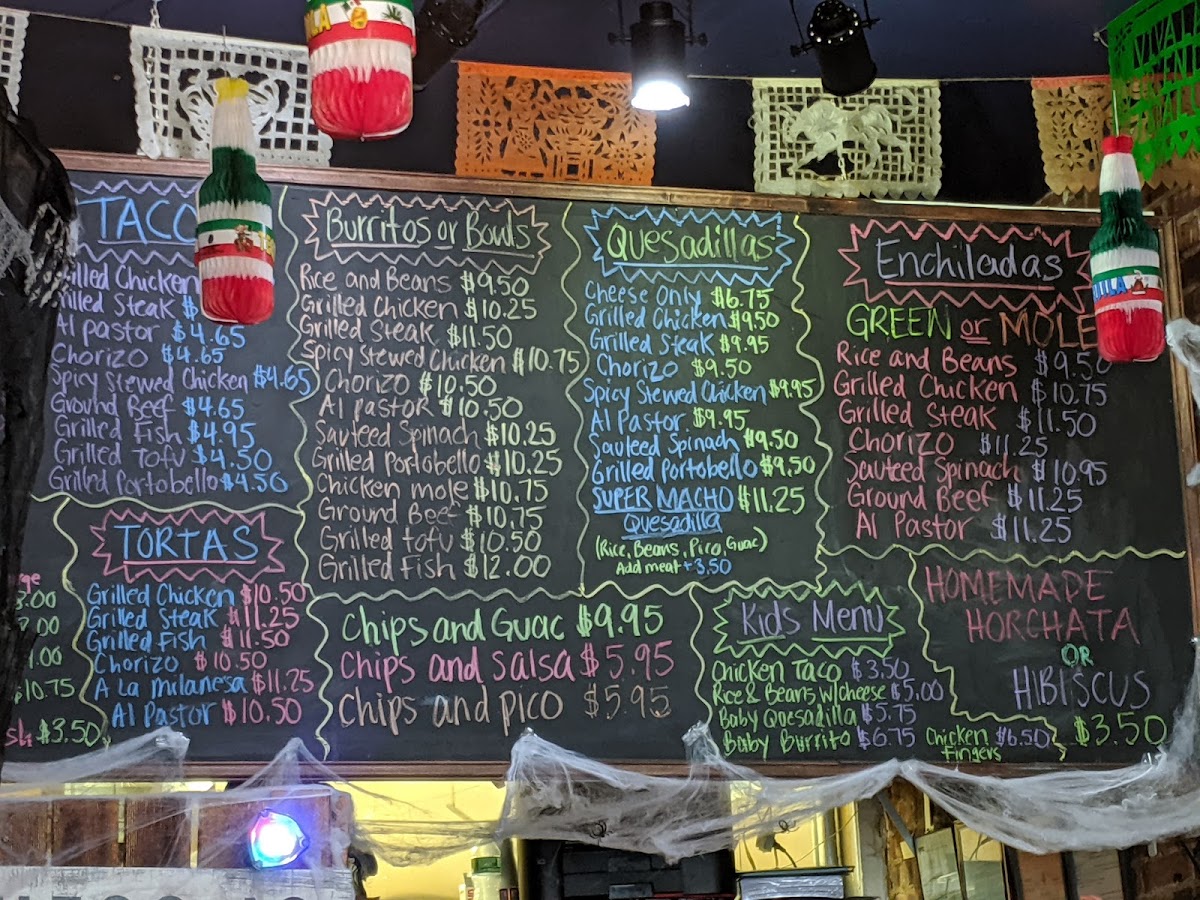 TACO
Grilled Chicken
Grilled Steak $
Al pastor $4.65
Chorizo $4.65
Spicy Stewed Chicken $4.65
Ground Beef $4.65
Grilled Fish $4.95
Grilled Tofu $4.50
Grilled Portobello $4.50
TORTAS
Grilled Chicken $10.50
Grilled Steak $11.25
Grilled Fish $11.50
Chorizo $10.50
A La Milanesa $11.25
Al Pastor $10.50
$10.75
$3.50
Burritos or Bowls
Rice and Beans $9.50
Grilled Chicken $10.25
Grilled Steak $11.50
Spicy Stewed Chicken $10.75
Chorizo $10.50
Al pastor $10.50
Sauteed Spinach $10.25
Grilled Portobello $10.25
Chicken mole $10.75
Ground Beef $10.75
Grilled tofu $10.50
Grilled Fish $12.00
Chips and Guac $9.95
Chips and Salsa $5.95
Chips and pico $5.95
Quesadillas
Cheese Only $6.75
Grilled Chicken $9.50
Grilled Steak $9.95
Chorizo $9.50
Spicy Stewed Chicken $9.95
Al Pastor $9.95
Sauteed Spinach $9.50
Grilled Portobello $9.50
SUPER MACHO $11.25
Quesadilla
(Rice, Beans, Pico, Guac)
Add meat +3.50
Kids Menu
Chicken Taco $3.50
Rice & Beans w/cheese $5.00
Baby Quesadilla $5.75
Baby Burrito $6.75
Chicken Fingers $6.50
Enchiladas
GREEN or MOLE
Rice and Beans $9.50
Grilled Chicken $10.75
Grilled Steak $11.50
Chorizo $11.25
Sauteed Spinach $10.95
Ground Beef $11.25
Al Pastor $11.25
HOMEMADE
HORCHATA
OR
HIBISCUS
$3.50